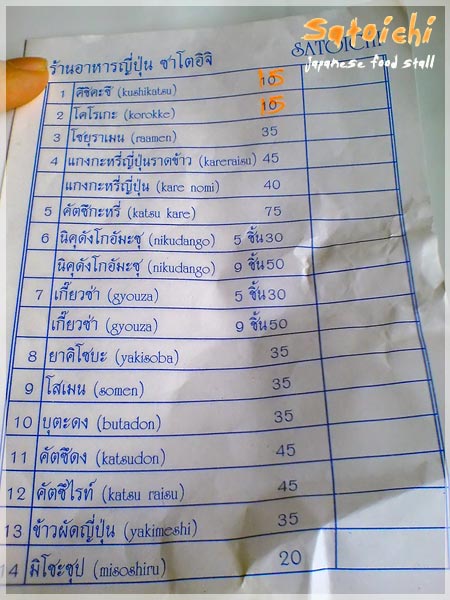 Satoichi
japanese food stall
ร้านอาหารญี่ปุ่น ซาโตอิจิ SATOICHI
1 คึชิคะซึ (kushikatsu) 15
2 โคโรเกะ (korokke) 15
3 โชยุราเมน (raamen) 35
4 แกงกะหรี่ญี่ปุ่นราดข้าว (kareraisu) 45
แกงกะหรี่ญี่ปุ่น (kare nomi) 40
5 คัตซึกะหรี่ (katsu kare) 75
6 นิคุดังโกอัมะซุ (nikudango) 5 ชิ้น30
นิคุดังโกอัมะซุ (nikudango) 9 ชิ้น50
7 เกี๊ยวซ่า (gyouza) 5 ชิ้น30
เกี๊ยวซ่า (gyouza) 9 ชิ้น50
8 ยาคิโซบะ (yakisoba) 35
9 โสเมน (somen) 35
10 บุตะดง (butadon) 35
11 คัตซึดง (katsudon) 45
12 คัตซึไรท์ (katsu raisu) 45
13 ข้าวผัดญี่ปุ่น (yakimeshi) 35
14 มิโซะซุป (misoshiru) 20